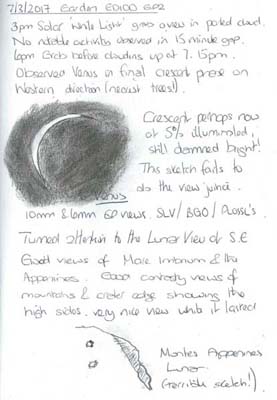 7/3/2017 Garden ED100 GP2
3pm Solar 'White Light' gave a view in parted cloud.
No notable activity observed in 15 minute gap.
6pm Grab before clouding up at 7.15pm.
Observed Venus in final crescent phase on
Western direction (nearest trees!).
Crescent perhaps now
at 5% illuminated,
still damned bright!
This sketch fails to
do the view justice.
Venus
10mm & 6mm EP views. SLV/BGO/Plossl's
Turned attention to the Lunar View of S.E
Good views of Mare Imbrium & the
Appenines. Good contrasty views of
mountains & crater edge showing the
high sides. very nice view while it lasted
Montes Appenines
Lunar
(terrible sketch!)